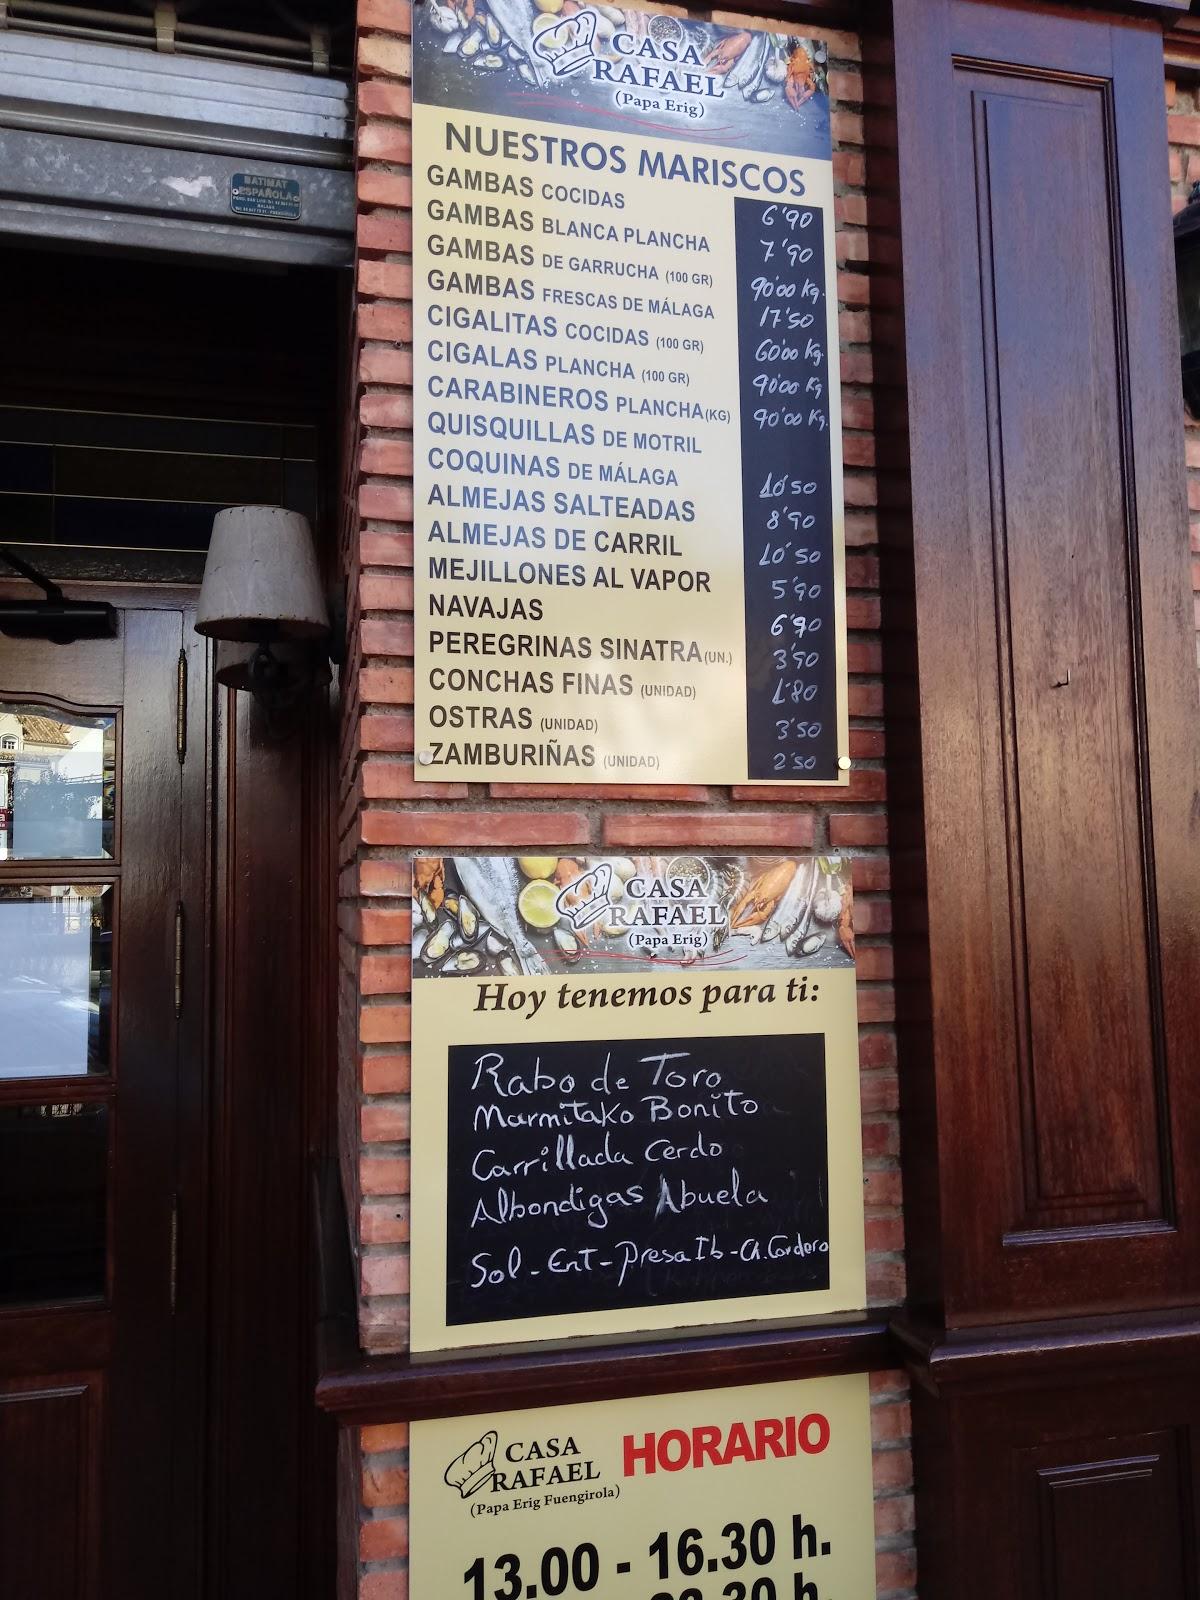 CASA
RAFAEL
(Papa Erig)
NUESTROS MARISCOS
GAMBAS COCIDAS 6'90
GAMBAS BLANCA PLANCHA 7'90
GAMBAS DE GARRUCHA (100 GR) 90'00 Kg.
GAMBAS FRESCAS DE MÁLAGA 17'50
CIGALITAS COCIDAS (100 GR) 60'00 Kg.
CIGALAS PLANCHA (100 GR) 90'00 Kg
CARABINEROS PLANCHA (KG) 90'00 Kg.
QUISQUILLAS DE MOTRIL
COQUINAS DE MÁLAGA 10'50
ALMEJAS SALTEADAS 8'90
ALMEJAS DE CARRIL 10'50
MEJILLONES AL VAPOR 5'90
NAVAJAS 6'90
PEREGRINAS SINATRA (UN.) 3'90
CONCHAS FINAS (UNIDAD) 1'80
OSTRAS (UNIDAD) 3'50
ZAMBURIÑAS (UNIDAD) 2'50
BATIMAT
ESPAÑOLA
CASA
RAFAEL
(Papa Erig)
Hoy tenemos para ti:
Rabo de Toro
Marmitako Bonito
Carrillada Cerdo
Albondigas Abuela
Sol - Ent - Presa Ib - Ch. Cordero
CASA
RAFAEL
(Papa Erig Fuengirola)
HORARIO
13.00 - 16.30 h.